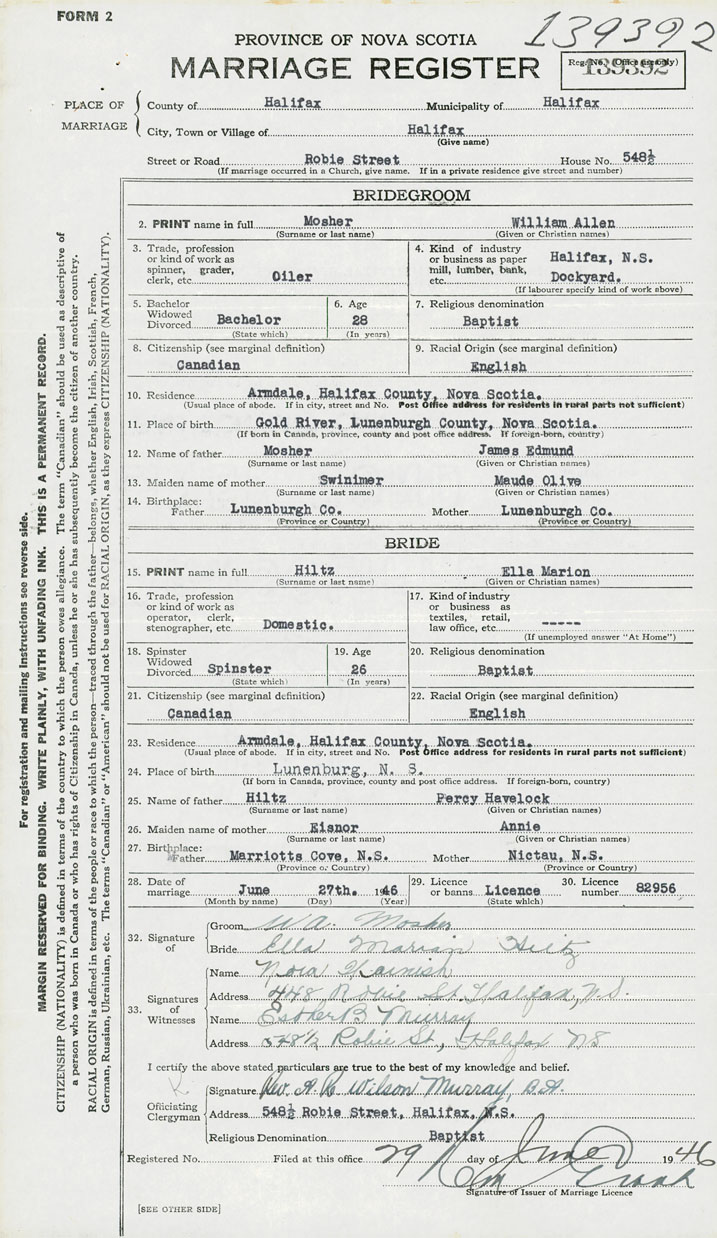 FORM 2
139392
PROVINCE OF NOVA SCOTIA
MARRIAGE REGISTER
Reg. No. (Office use only)
139392
PLACE OF MARRIAGE
County of Halifax Municipality of Halifax
City, Town or Village of Halifax
(Give name)
Street or Road Robie Street House No. 548½
(If marriage occurred in a Church, give name. If in a private residence give street and number)
BRIDEGROOM
2. PRINT name in full Mosher William Allen
(Surname or last name) (Given or Christian names)
3. Trade, profession or kind of work as spinner, grader, clerk, etc. Oiler
4. Kind of industry or business as paper mill, lumber, bank, etc. Halifax, N.S. Dockyard.
(If labourer specify kind of work above)
5. Bachelor Widowed Divorced Bachelor
(State which)
6. Age 28
(In years)
7. Religious denomination
Baptist
8. Citizenship (see marginal definition)
Canadian
9. Racial Origin (see marginal definition)
English
10. Residence Armdale, Halifax County, Nova Scotia.
(Usual place of abode. If in city, street and No. Post Office address for residents in rural parts not sufficient)
11. Place of birth Gold River, Lunenburgh County, Nova Scotia.
(If born in Canada, province, county and post office address. If foreign-born, country)
12. Name of father Mosher James Edmund
(Surname or last name) (Given or Christian names)
13. Maiden name of mother Swinimer Maude Olive
(Surname or last name) (Given or Christian names)
14. Birthplace:
Father Lunenburgh Co. Mother Lunenburgh Co.
(Province or Country) (Province or Country)
BRIDE
15. PRINT name in full Hiltz Ella Marion
(Surname or last name) (Given or Christian names)
16. Trade, profession or kind of work as operator, clerk, stenographer, etc. Domestic.
17. Kind of industry or business as textiles, retail, law office, etc. -----
(If unemployed answer "At Home")
18. Spinster Widowed Divorced Spinster
(State which)
19. Age 26
(In years)
20. Religious denomination
Baptist
21. Citizenship (see marginal definition)
Canadian
22. Racial Origin (see marginal definition)
English
23. Residence Armdale, Halifax County, Nova Scotia.
(Usual place of abode. If in city, street and No. Post Office address for residents in rural parts not sufficient)
24. Place of birth Lunenburg, N. S.
(If born in Canada, province, county and post office address. If foreign-born, country)
25. Name of father Hiltz Percy Havelock
(Surname or last name) (Given or Christian names)
26. Maiden name of mother Eisnor Annie
(Surname or last name) (Given or Christian names)
27. Birthplace:
Father Marriotts Cove, N.S. Mother Nictau, N.S.
(Province or Country) (Province or Country)
28. Date of marriage June 27th. 1946
(Month by name) (Day) (Year)
29. Licence or banns Licence
(State which)
30. Licence number 82956
32. Signature of
Groom W A. Mosher
Bride Ella Marian Hiltz
33. Signatures of Witnesses
Name Nora Spainish
Address 448 Robie St. Halifax, N.S.
Name Esther B Murray
Address 548½ Robie St., Halifax NS
I certify the above stated particulars are true to the best of my knowledge and belief.
Officiating Clergyman
Signature Rev. A. R. Wilson Murray, B.A.
Address 548½ Robie Street, Halifax, N.S.
Religious Denomination Baptist
Registered No. Filed at this office 29 day of June 1946
Signature of Issuer of Marriage Licence
[SEE OTHER SIDE]
For registration and mailing instructions see reverse side.
MARGIN RESERVED FOR BINDING. WRITE PLAINLY, WITH UNFADING INK. THIS IS A PERMANENT RECORD.
CITIZENSHIP (NATIONALITY) is defined in terms of the country to which the person owes allegiance. The term "Canadian" should be used as descriptive of
a person who was born in Canada or who has rights of Citizenship in Canada, unless he or she has subsequently become the citizen of another country.
RACIAL ORIGIN is defined in terms of the people or race to which the person—traced through the father—belongs, whether English, Irish, Scottish, French,
German, Russian, Ukrainian, etc. The terms "Canadian" or "American" should not be used for RACIAL ORIGIN, as they express CITIZENSHIP (NATIONALITY).